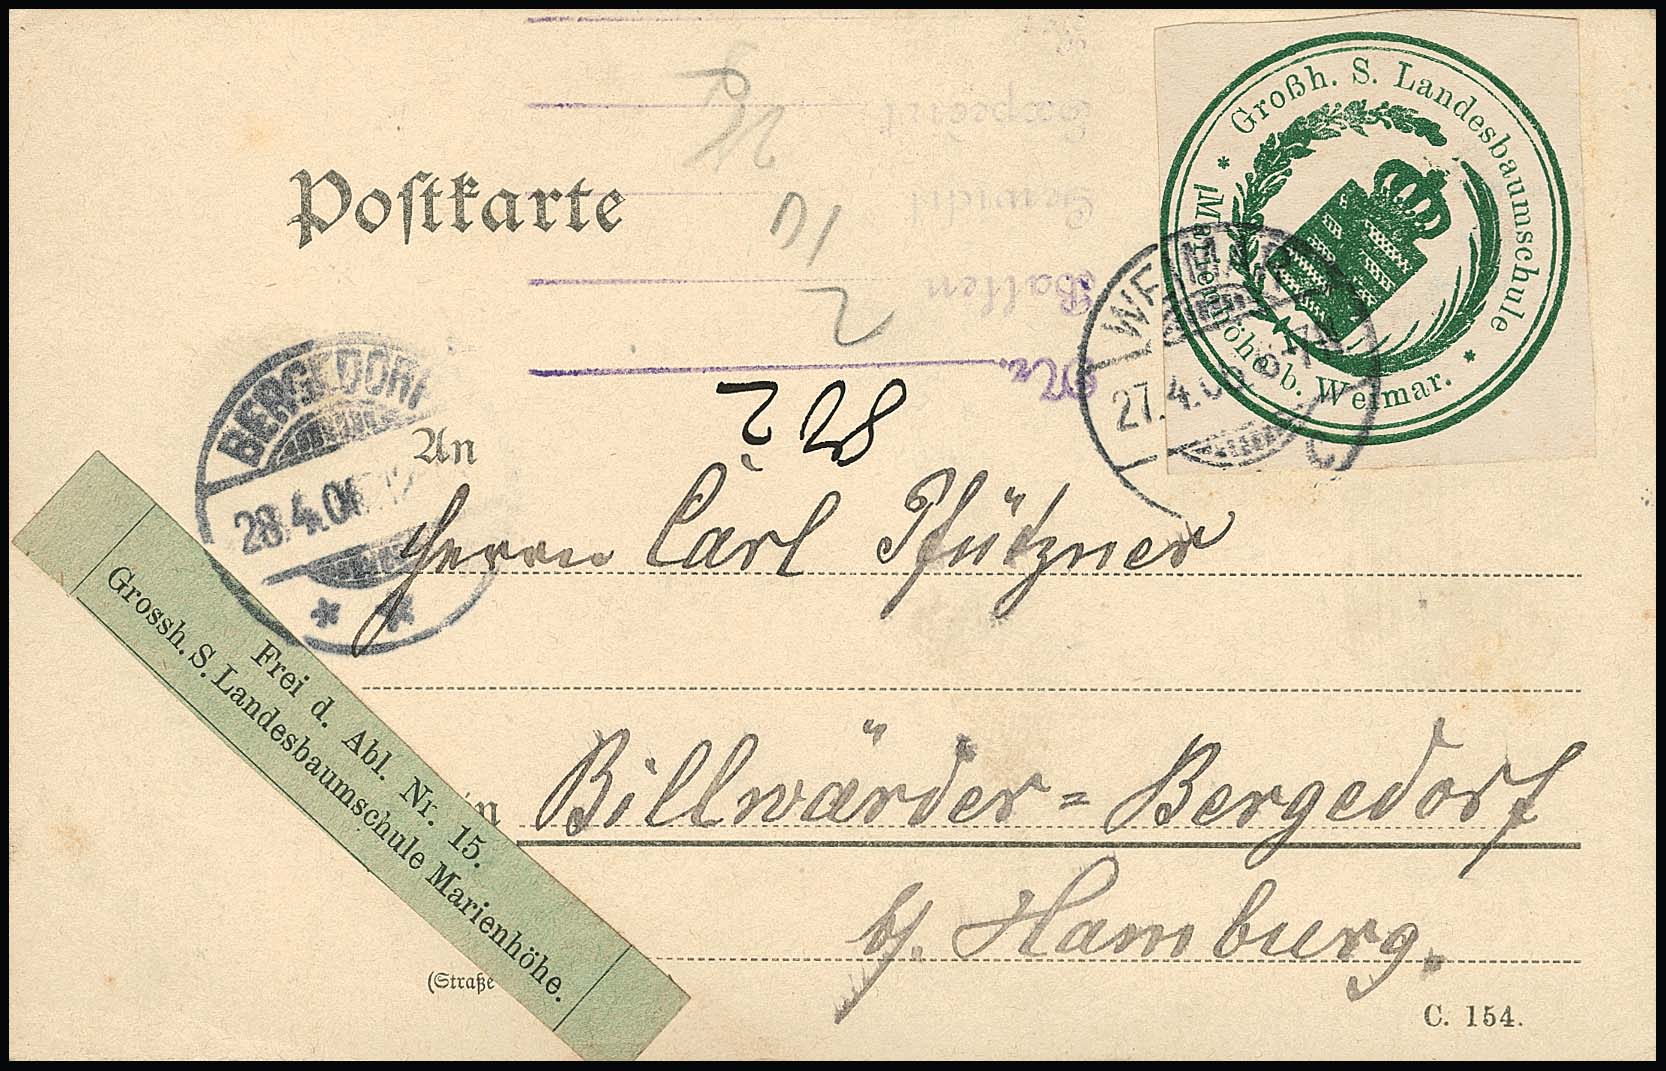 Großh. S. Landesbaumschule
* Marienhöhe b. Weimar. *
Postkarte
Expedirt
Gewicht
Ballen
Nr.
WEIMAR
27.4.06.
BERGEDORF
28.4.06
An
Herrn Carl Pfützner
in Billwärder=Bergedorf
b/. Hamburg.
Frei d. Abl. Nr. 15.
Grossh. S. Landesbaumschule Marienhöhe.
(Straße
C. 154.